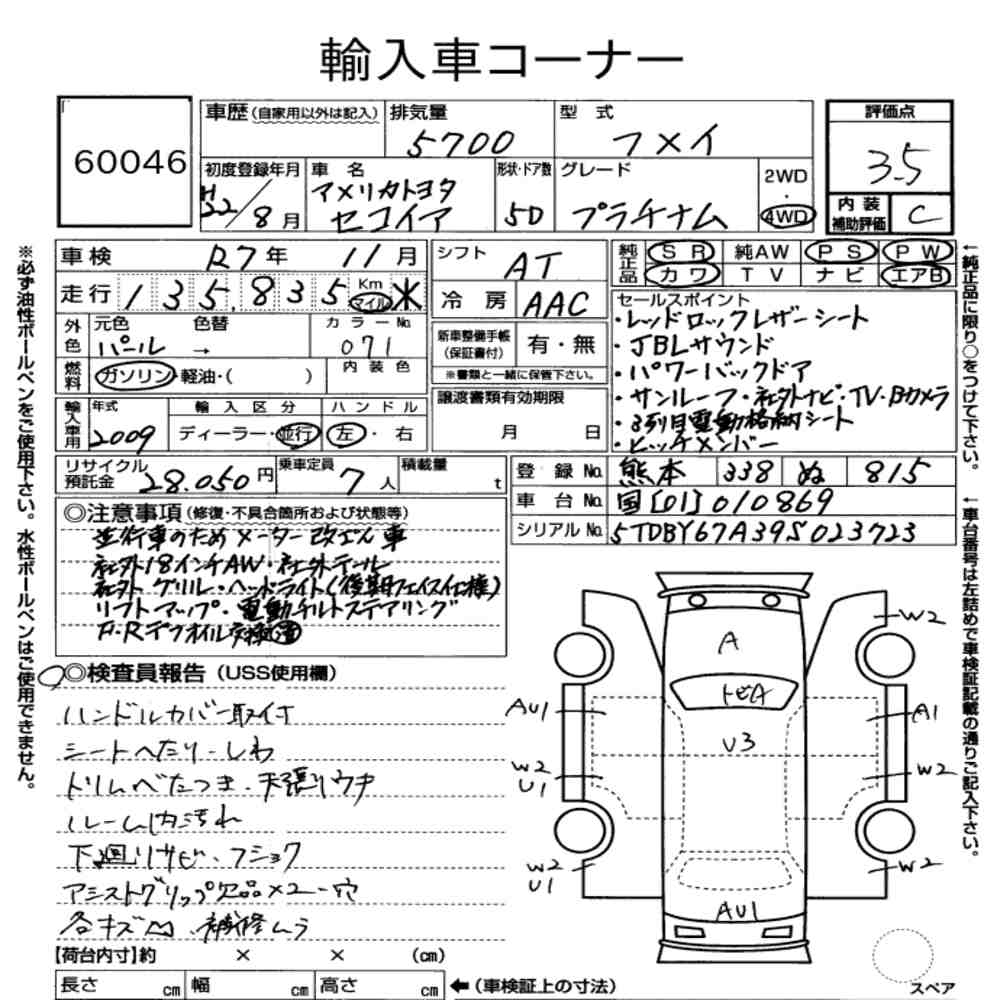 輸入車コーナー
60046
車歴(自家用以外は記入) 排気量 5700 型式 フメイ
評価点 3.5
初度登録年月 H22/8月 車名 アメリカトヨタ セコイア 形状・ドア数 5D グレード プラチナム 2WD・4WD
内装補助評価 C
車検 R7年 11月 シフト AT
純正品 SR 純AW PS PW
カワ TV ナビ エアB
走行 135,835 Km マイル ※ 冷房 AAC
外色 元色 パール 色替 → カラーNo. 071
燃料 ガソリン・軽油・( ) 内装色
新車整備手帳(保証書付) 有・無
※書類と一緒に保管下さい。
輸入車用 年式 2009 輸入区分 ディーラー・並行 ハンドル 左・右
譲渡書類有効期限 月 日
セールスポイント
・レッドロックレザーシート
・JBLサウンド
・パワーバックドア
・サンルーフ・社外ナビ・TV・Bカメラ
・3列目電動格納シート
・ヒッチメンバー
リサイクル預託金 28.050円 乗車定員 7人 積載量 t
登録No. 熊本 338 ぬ 815
車台No. 国[01]010869
シリアルNo. 5TDBY67A39S023723
◎注意事項(修復・不具合箇所および状態等)
並行車のためメーター改ざん車
社外18インチAW・社外テール
社外グリル・ヘッドライト(後期フェイス仕様)
リフトアップ・電動チルトステアリング
F・Rデフオイル交換済
◎検査員報告(USS使用欄)
ハンドルカバー取付
シートへたり・しわ
トリムべたつき・天張りウキ
ルーム内汚れ
下廻りサビ・フショク
アシストグリップ欠品×2・穴
各キズ凹 補修ムラ
【荷台内寸】約 × × (cm)
長さ cm 幅 cm 高さ cm
←(車検証上の寸法)
A
トビA
U3
AU1
AU1
W2
U1
W2
U1
W2
A1
W2
W2
スペア
※必ず油性ボールペンをご使用下さい。水性ボールペンはご使用できません。
←純正品に限り○をつけて下さい。
←車台番号は左詰めで車検証記載の通りご記入下さい。